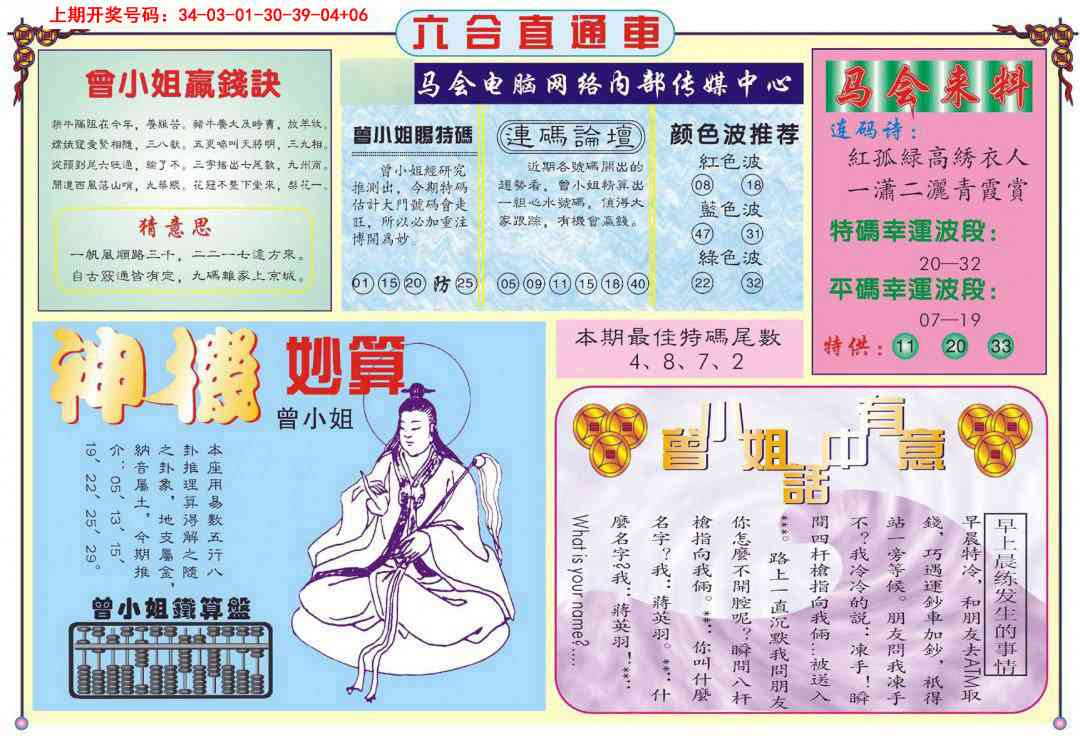 上期开奖号码：34-03-01-30-39-04+06
六合直通車
曾小姐贏錢訣
猜意思
一帆風順路三千，二二一七遠方來。
自古窮通皆有定，九碼離家上京城。
马会电脑网络内部传媒中心
曾小姐賜特碼
曾小姐經研究
推測出，今期特碼
估計大門號碼會走
旺，所以必加重注
博開為妙。
01 15 20 防 25
連碼論壇
近期各號碼開出的
趨勢看，曾小姐精算出
一組心水號碼，值得大
家跟踪，有機會贏錢。
05 09 11 15 18 40
颜色波推荐
紅色波
08 18
藍色波
47 31
綠色波
22 32
马会来料
连码诗：
紅孤緑高綉衣人
一瀟二灑青霞賞
特碼幸運波段：
20—32
平碼幸運波段：
07—19
特供：11 20 33
神機妙算
曾小姐
本座用易數五行八
卦推理算得解之隨
之卦象，地支屬金，
納音屬土，今期推
介：05、13、15、
19、22、25、29。
曾小姐鐵算盤
本期最佳特碼尾數
4、8、7、2
曾小姐話中有意
早上晨练发生的事情
早晨特冷，和朋友去ATM取
錢，巧遇運鈔車加鈔，祇得
站一旁等候。朋友問我凍手
不？我冷冷的說：凍手！瞬
間四杆槍指向我倆…被送入
***。
路上一直沉默我問朋友
你怎麼不開腔呢？瞬間八杆
槍指向我倆。**：你叫什麼
名字？我：蔣英羽。**：什
麼名字？我：蔣英羽！**：
What is your name?....